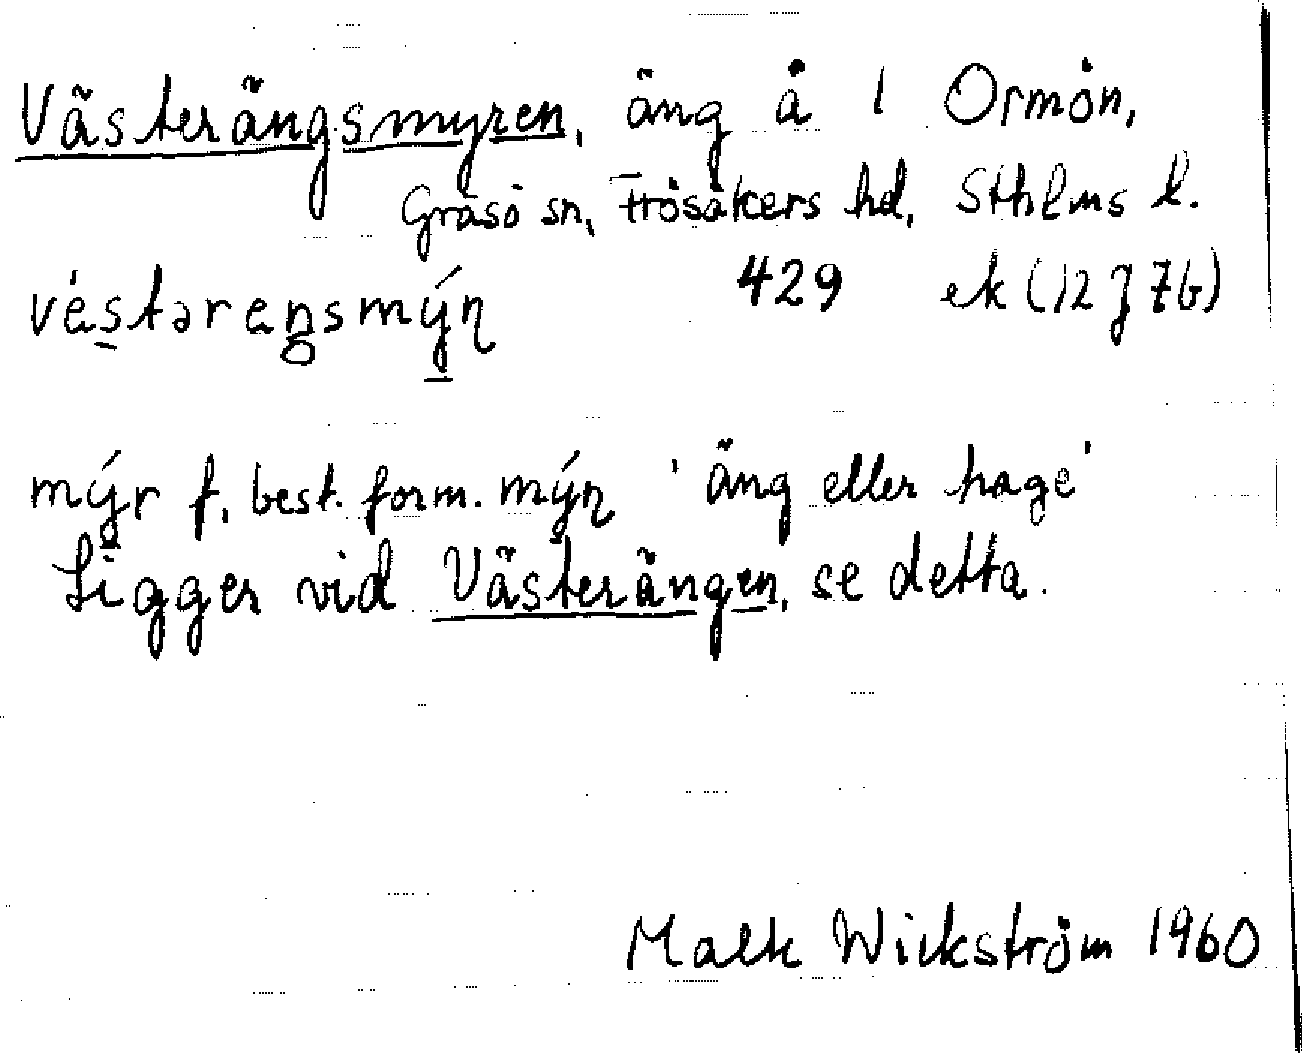 Västerängsmyren, äng å 1 Ormön,
Gräsö sn, Frösåkers hd, Sthlms l.
véstəreŋsmýɳ 429 ek (12 J 7b)
mýr f, best. form. mýɳ 'äng eller hage'
Ligger vid Västerängen, se detta.
Wickström 1960